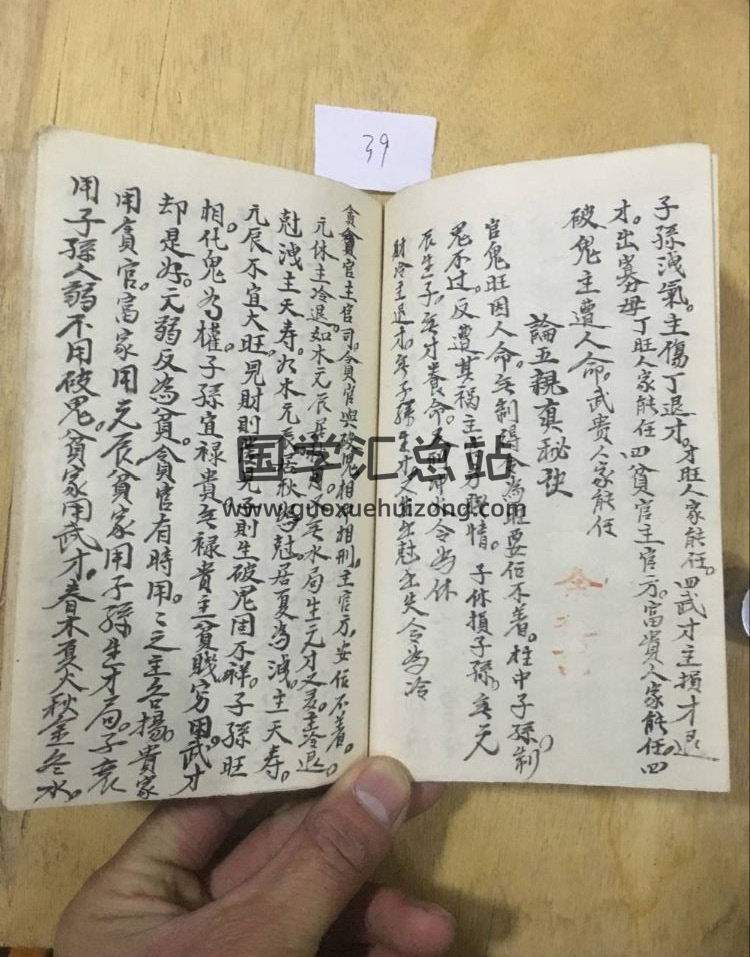 39
子孫洩氣。主傷丁退才。才旺人家能任。四武才主損才退
才。出寡母丁旺人家能任四貧官主官方。富貴人家能任。四
破鬼主遭人命。武貴人家能任
論五親真秘訣
官鬼旺因人命無制得令為旺要任不着。柱中子孫制
鬼不过。反遭其祸主官牙 情。子休損子孫。無元
辰生子。無才養命。 令為休
財冷主退才。無子孫生才 尅 失令為冷
貪官主官司。貪官與破鬼相 相刑。主官方。安伍不着。
元休主冷退。如木元辰 水局生元才 主冷退
尅洩主夭寿。如木元辰居秋為尅。居夏為洩。主夭寿。
元辰不宜大旺。見財則 見子則生破鬼固不祥。子孫旺
相。化鬼為權。子孫宜禄貴無禄貴主貧賤穷用武才
却是好。元弱反為貧。貪官有時用。用之主名揚。貴家
用貪官。富家用元辰貧家用子孫生才局。子衰
用子孫人弱不用破鬼。貧家用武才。春木夏火秋金冬水。
国学汇总站
www.guoxuehuizong.com